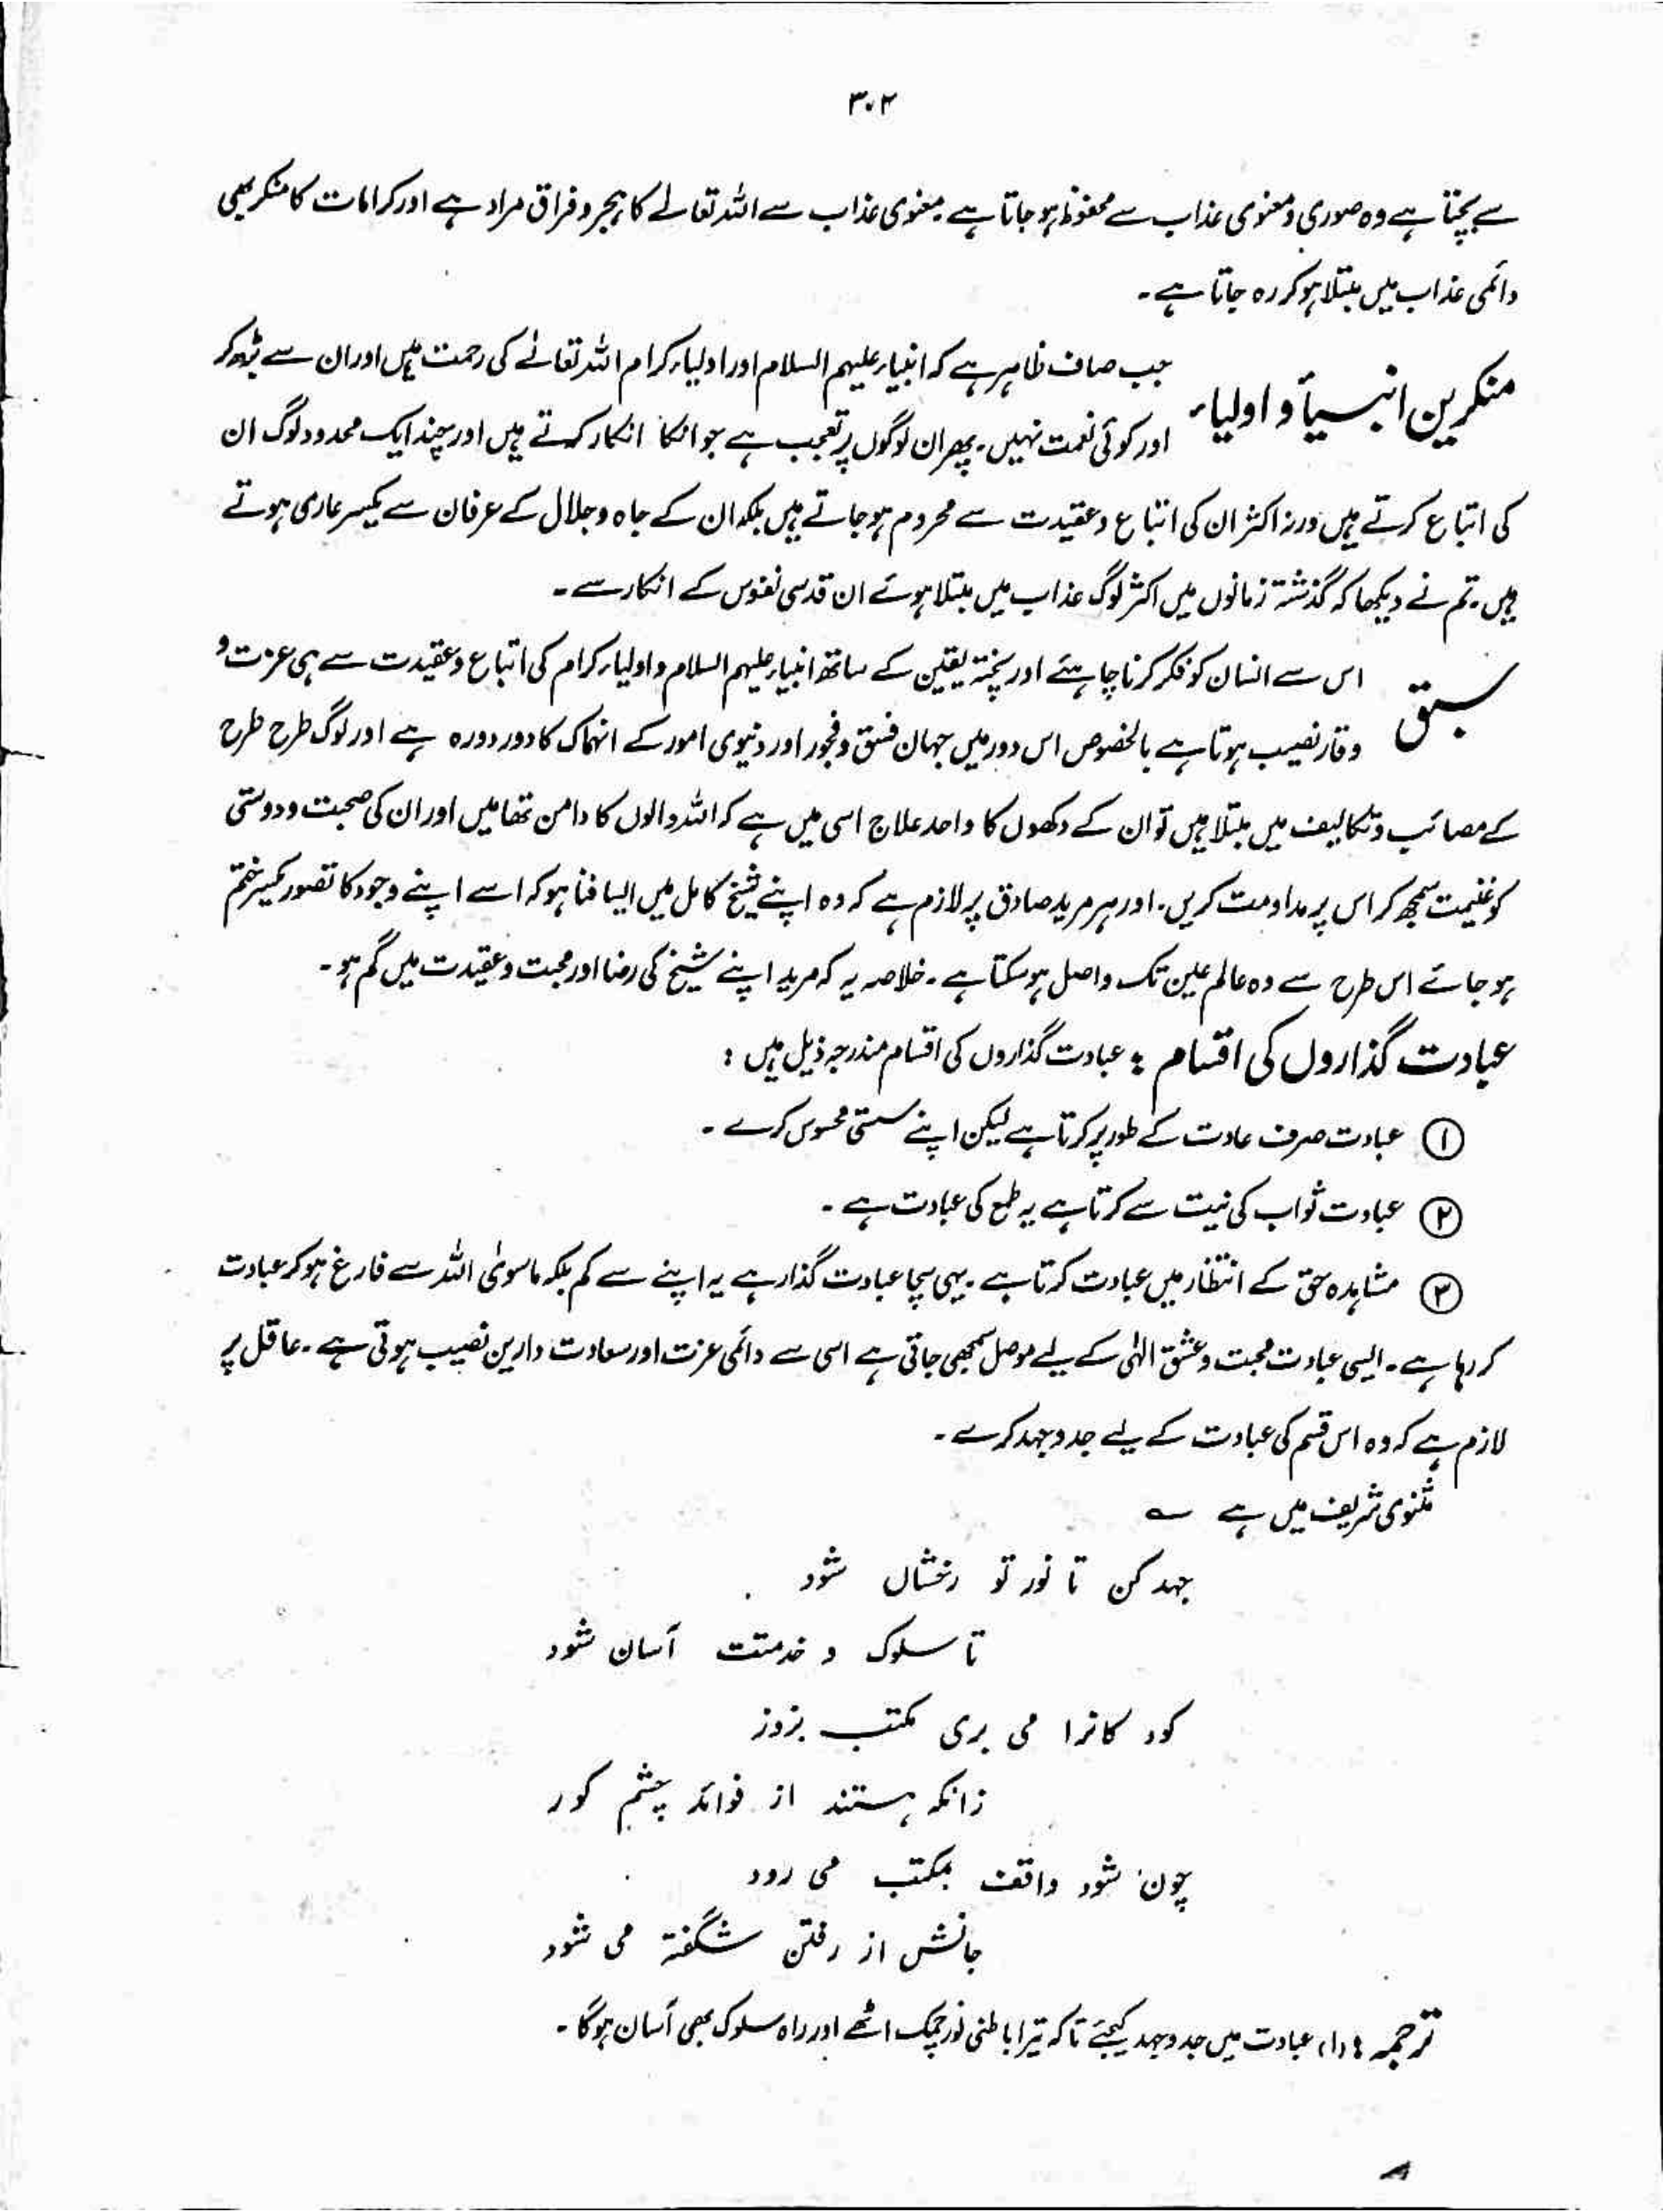 ۳۰۲
سے بچتا ہے وہ صوری و معنوی عذاب سے محفوظ ہو جاتا ہے۔ معنوی عذاب سے اللہ تعالےٰ کا ہجر و فراق مراد ہے اور کرامات کا منکر بھی
دائمی عذاب میں مبتلا ہو کر رہ جاتا ہے۔
منکرین انبیاؑ و اولیاء
جب صاف ظاہر ہے کہ انبیاء علیہم السلام اور اولیاء کرام اللہ تعالےٰ کی رحمت ہیں اور ان سے بڑھ کر
اور کوئی نعمت نہیں۔ پھر ان لوگوں پر تعجب ہے جو انکا انکار کرتے ہیں اور چند ایک محدود لوگ ان
کی اتباع کرتے ہیں ورنہ اکثر ان کی اتباع و عقیدت سے محروم ہو جاتے ہیں بلکہ ان کے جاہ و جلال کے عرفان سے یکسر عاری ہوتے
ہیں۔ تم نے دیکھا کہ گذشتہ زمانوں میں اکثر لوگ عذاب میں مبتلا ہوئے ان قدسی نفوس کے انکار سے۔
سبق
اس سے انسان کو فکر کرنا چاہیئے اور پختہ یقین کے ساتھ انبیاء علیہم السلام و اولیاء کرام کی اتباع و عقیدت سے ہی عزت و
وقار نصیب ہوتا ہے بالخصوص اس دور میں جہان فسق و فجور اور دنیوی امور کے انہماک کا دور دورہ ہے اور لوگ طرح طرح
کے مصائب و تکالیف میں مبتلا ہیں تو ان کے دکھوں کا واحد علاج اسی میں ہے کہ اللہ والوں کا دامن تھامیں اور ان کی صحبت و دوستی
کو غنیمت سمجھ کر اس پر مداومت کریں۔ اور ہر مرید صادق پر لازم ہے کہ وہ اپنے شیخ کامل میں ایسا فنا ہو کہ اسے اپنے وجود کا تصور یکسر ختم
ہو جائے اس طرح سے وہ عالم عین تک واصل ہو سکتا ہے۔ خلاصہ یہ کہ مرید اپنے شیخ کی رضا اور محبت و عقیدت میں گم ہو۔
عبادت گذاروں کی اقسام : عبادت گذاروں کی اقسام مندرجہ ذیل ہیں :
① عبادت صرف عادت کے طور پر کرتا ہے لیکن اپنے سستی محسوس کرے۔
② عبادت ثواب کی نیت سے کرتا ہے یہ طمع کی عبادت ہے۔
③ مشاہدہ حق کے انتظار میں عبادت کرتا ہے۔ یہی سچا عبادت گذار ہے یہ اپنے سے گم بلکہ ماسویٰ اللہ سے فارغ ہو کر عبادت
کر رہا ہے۔ ایسی عبادت محبت و عشق الہٰی کے لیے موصل سمجھی جاتی ہے اسی سے دائمی عزت اور سعادت دارین نصیب ہوتی ہے۔ عاقل پر
لازم ہے کہ وہ اس قسم کی عبادت کے لیے جد و جہد کرے۔
مثنوی شریف میں ہے ؎
جہد کن تا نور تو رخشاں شود
تا سلوک و خدمتت آسان شود
کود کانرا می بری مکتب بزور
زانکہ ہستند از فوائد چشم کور
چون شود واقف بمکتب می رود
جانش از رفتن شگفتہ می شود
ترجمہ : (۱) عبادت میں جد و جہد کیجئے تاکہ تیرا باطنی نور چمک اٹھے اور راہ سلوک بھی آسان ہو گا۔